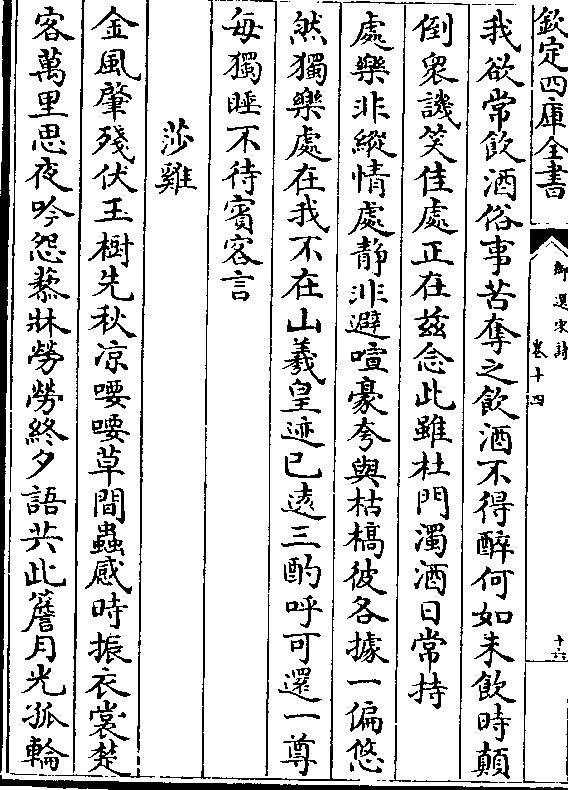 欽定四庫全書
御選宋詩
卷十四
十六
我欲常飲酒俗事苦奪之飲酒不得醉何如未飲時顛
倒衆譏笑佳處正在兹念此雖杜門濁酒日常持
處樂非縱情處静非避喧豪夸與枯槁彼各據一偏悠
然獨樂處在我不在山羲皇迹已遠三酌呼可還一尊
每獨睡不待賓客言
莎雞
金風肇殘伏玉樹先秋凉喓喓草間蟲感時振衣裳楚
客萬里思夜吟怨藜牀勞勞終夕語共此簷月光孤輪